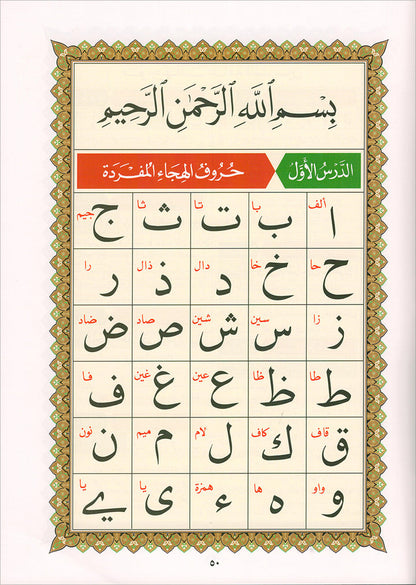 بِسْمِ ٱللَّهِ ٱلرَّحْمَٰنِ ٱلرَّحِيمِ
الدَّرْسُ الأَوَّلُ حُرُوفُ الهِجَاءِ المُفْرَدَةِ
ألف با تا ثا جيم
ا ب ت ث ج
حا خا دال ذال را
ح خ د ذ ر
زا سين شين صاد ضاد
ز س ش ص ض
طا ظا عين غين فا
ط ظ ع غ ف
قاف كاف لام ميم نون
ق ك ل م ن
واو ها همزة يا يا
و ه ء ى ے
٥٠